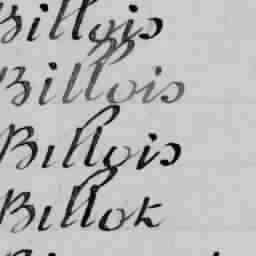 Billois
Billois
Billois
Billok